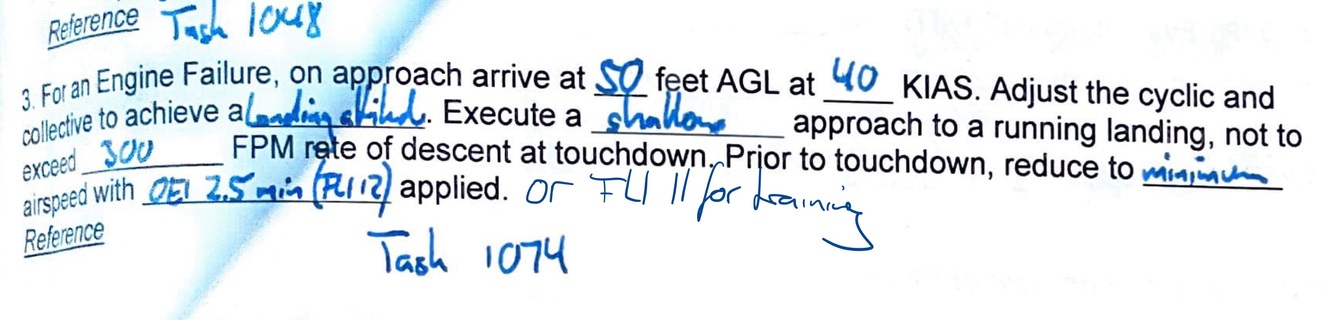 Reference Task 1048
3. For an Engine Failure, on approach arrive at 50 feet AGL at 40 KIAS. Adjust the cyclic and
collective to achieve a Landing attitude. Execute a shallow approach to a running landing, not to
exceed 300 FPM rate of descent at touchdown. Prior to touchdown, reduce to minimum
airspeed with OEI 2.5 min (FLI 12) applied. or FLI 11 for training
Reference
Task 1074